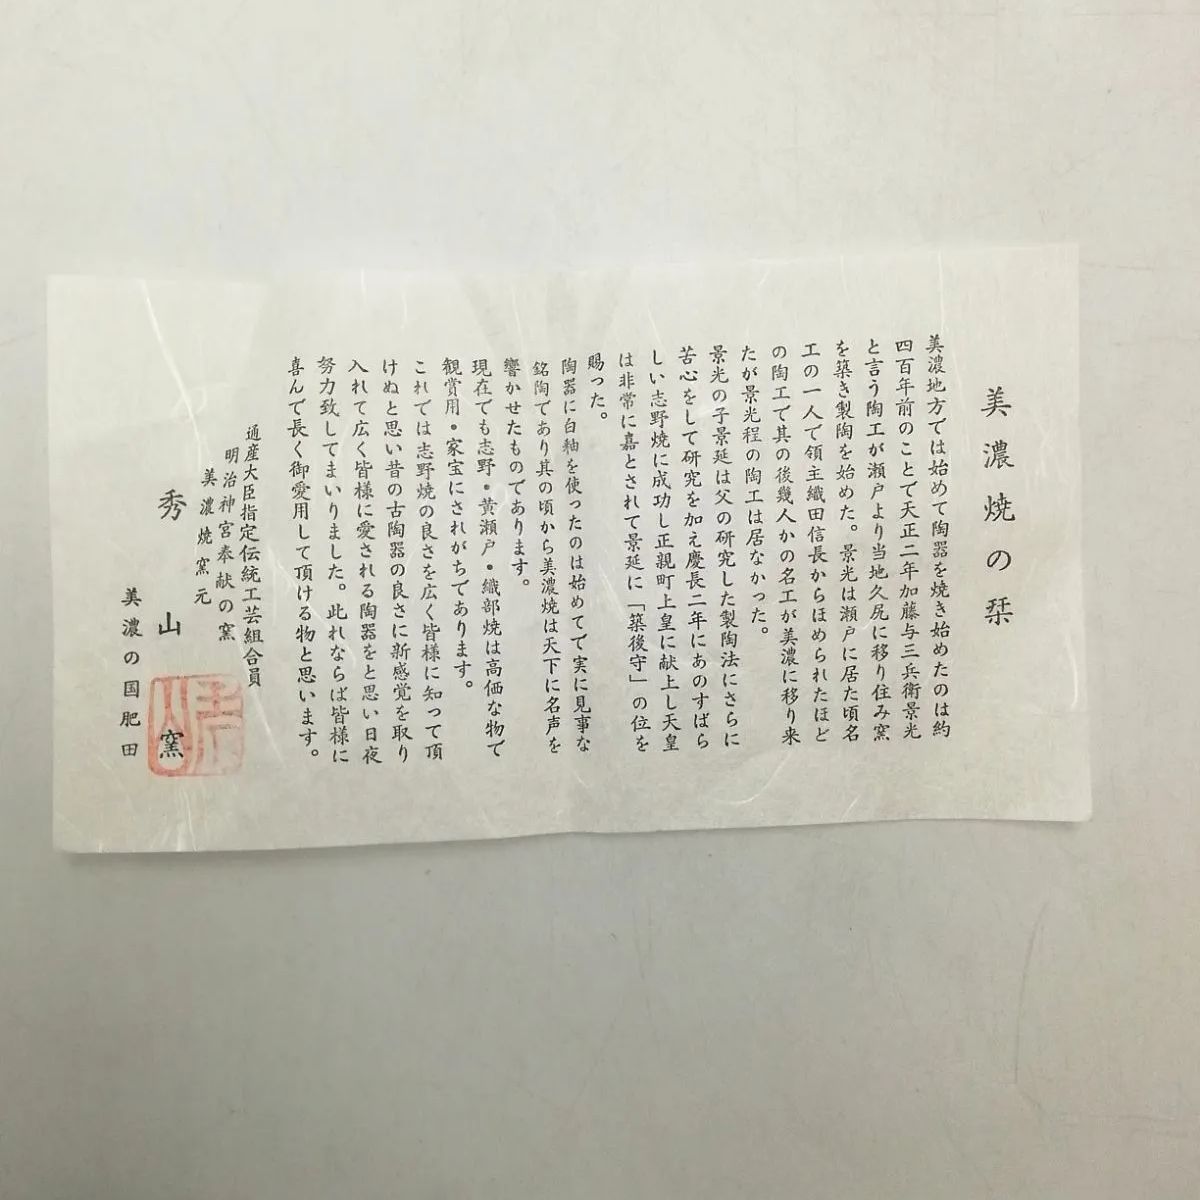 美濃焼の栞
美濃地方では始めて陶器を焼き始めたのは約
四百年前のことで天正二年加藤与三兵衛景光
と言う陶工が瀬戸より当地久尻に移り住み窯
を築き製陶を始めた。景光は瀬戸に居た頃名
工の一人で領主織田信長からほめられたほど
の陶工で其の後幾人かの名工が美濃に移り来
たが景光程の陶工は居なかった。
景光の子景延は父の研究した製陶法にさらに
苦心をして研究を加え慶長二年にあのすばら
しい志野焼に成功し正親町上皇に献上し天皇
は非常に嘉とされて景延に「築後守」の位を
賜った。
陶器に白釉を使ったのは始めてで実に見事な
銘陶であり其の頃から美濃焼は天下に名声を
響かせたものであります。
現在でも志野・黄瀬戸・織部焼は高価な物で
観賞用・家宝にされがちであります。
これでは志野焼の良さを広く皆様に知って頂
けぬと思い昔の古陶器の良さに新感覚を取り
入れて広く皆様に愛される陶器をと思い日夜
努力致してまいりました。此れならば皆様に
喜んで長く御愛用して頂ける物と思います。
通産大臣指定伝統工芸組合員
明治神宮奉献の窯
美濃焼窯元
秀山窯
美濃の国肥田